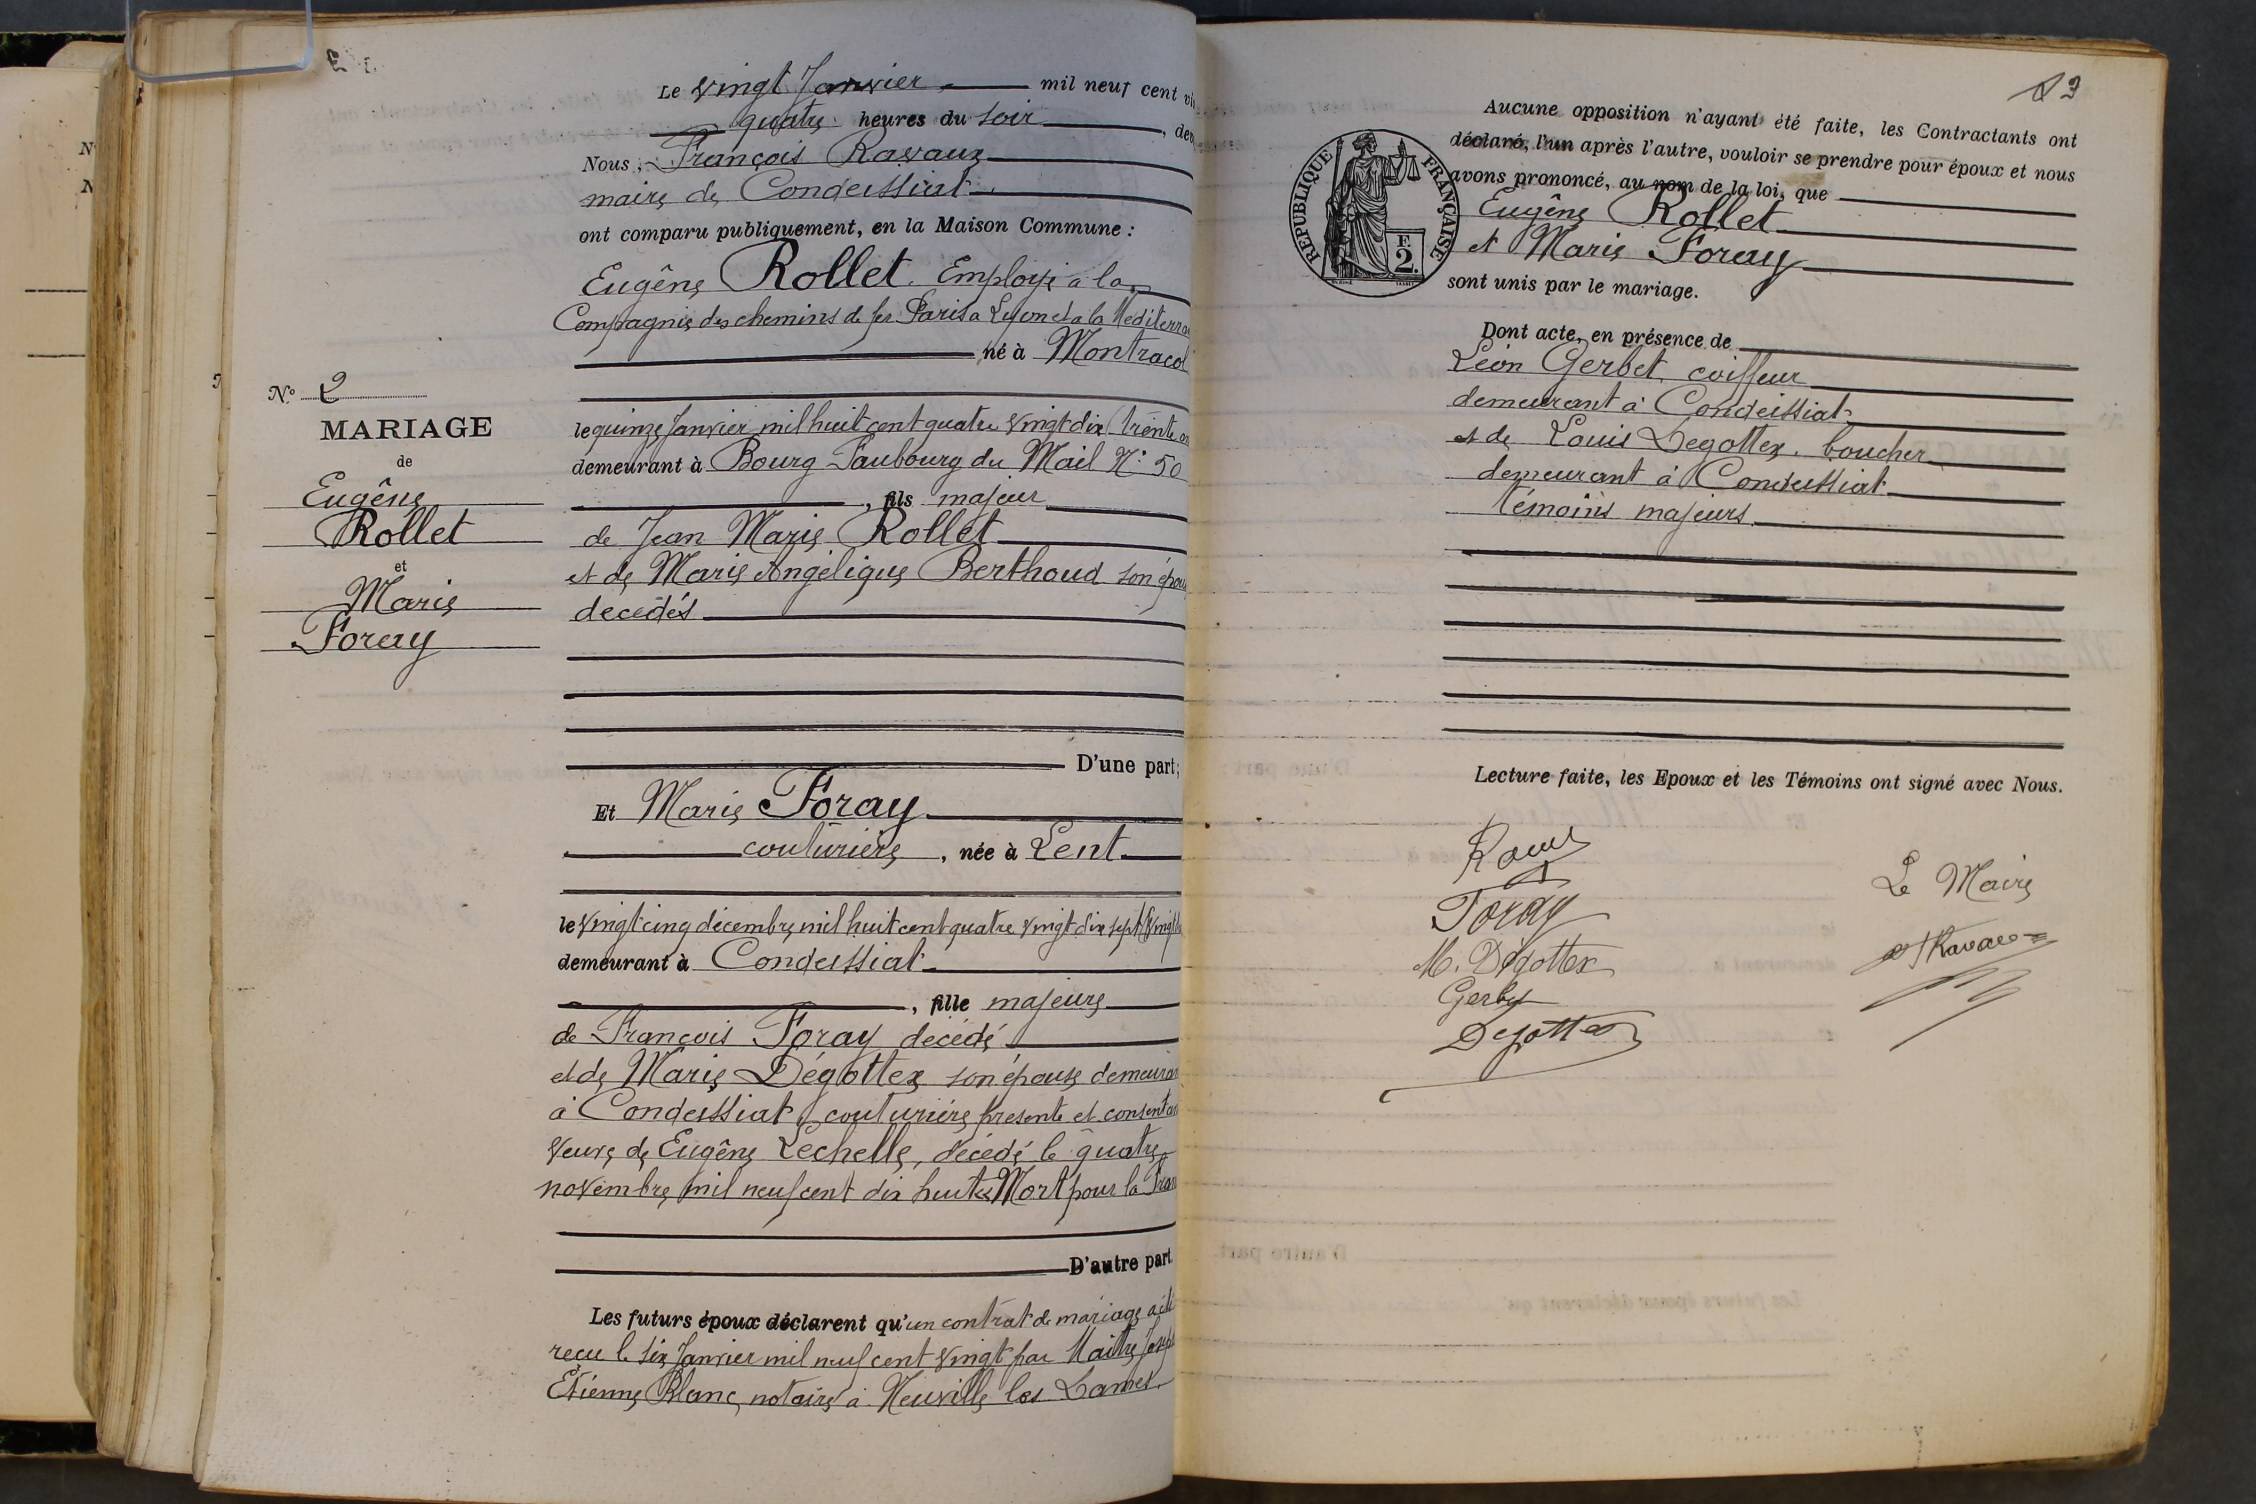 Le vingt Janvier mil neuf cent
quatre heures du soir
Nous, François Ravaux
maire de Condeissiat
ont comparu publiquement, en la Maison Commune :
Eugène Rollet. Employé à la
Compagnie des chemins de fer Paris a Lyon et a la Méditerra
né à Montracol
N° 2
MARIAGE
de
Eugène
Rollet
et
Marie
Foray
le quinze Janvier mil huit cent quatre vingt dix (trente
demeurant à Bourg Faubourg du Mail N° 50
, fils majeur
de Jean Marie Rollet
et de Marie Angélique Berthoud son épou
decédés
D'une part;
Et Marie Foray
couturière, née à Lent
le vingt cinq décembre mil huit cent quatre vingt dix sept (vingt
demeurant à Condeissiat
, fille majeure
de François Foray décédé
et de Marie Dégottex son épouse demeuran
à Condeissiat, couturière, présente et consentan
veuve de Eugène Lechelle, décédé le quatre
novembre mil neuf cent dix huit Mort pour la Fran
D'autre part.
Les futurs époux déclarent qu'un contrat de mariage a été
reçu le six Janvier mil neuf cent vingt par Maître Joseph
Etienne Blanc, notaire à Neuville les Dames.
Aucune opposition n'ayant été faite, les Contractants ont
déclaré, l'un après l'autre, vouloir se prendre pour époux et nous
avons prononcé, au nom de la loi, que
REPUBLIQUE FRANÇAISE
F.
2.
Eugène Rollet
et Marie Foray
sont unis par le mariage.
Dont acte, en présence de
Léon Gerbet, coiffeur
demeurant à Condeissiat
et de Louis Degottex, boucher
demeurant à Condeissiat
témoins majeurs
Lecture faite, les Epoux et les Témoins ont signé avec Nous.
Foray
M. Dégottex
Gerbet
Degottex
Le Maire
Ravaux